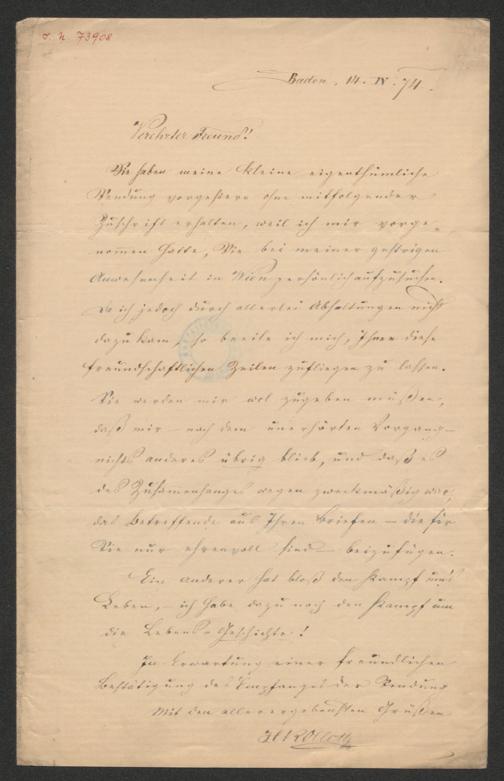 I. N. 73908
Baden, 14. IV. 74.
Verehrter Freund!
Sie haben meine kleine eigenthümliche
Sendung vorgestern ohne mitfolgender
Zuschrift erhalten, weil ich mir vorge-
nommen hatte, Sie bei meiner gestrigen
Anwesenheit in Wien persönlich aufzusuchen.
Da ich jedoch durch allerlei Abhaltungen nicht
dazu kam, so beeile ich mich, Ihnen diese
freundschaftlichen Zeilen zufliegen zu lassen.
Sie werden mir wol zugeben müßen,
daß mir – nach dem unerhörten Vorgang –
nichts anderes übrig blieb, und daß es
des Zusamenhanges wegen zweckmäßig war,
das Betreffende aus Ihren Briefen – die für
Sie nur ehrenvoll sind – beizufügen.
Ein anderer hat bloß den Kampf um's
Leben, – ich habe dazu noch den Kampf um
die Lebens-Geschichte!
In Erwartung einer freundlichen
Bestätigung des Empfanges der Sendung
Mit den allerergebensten Grüßen